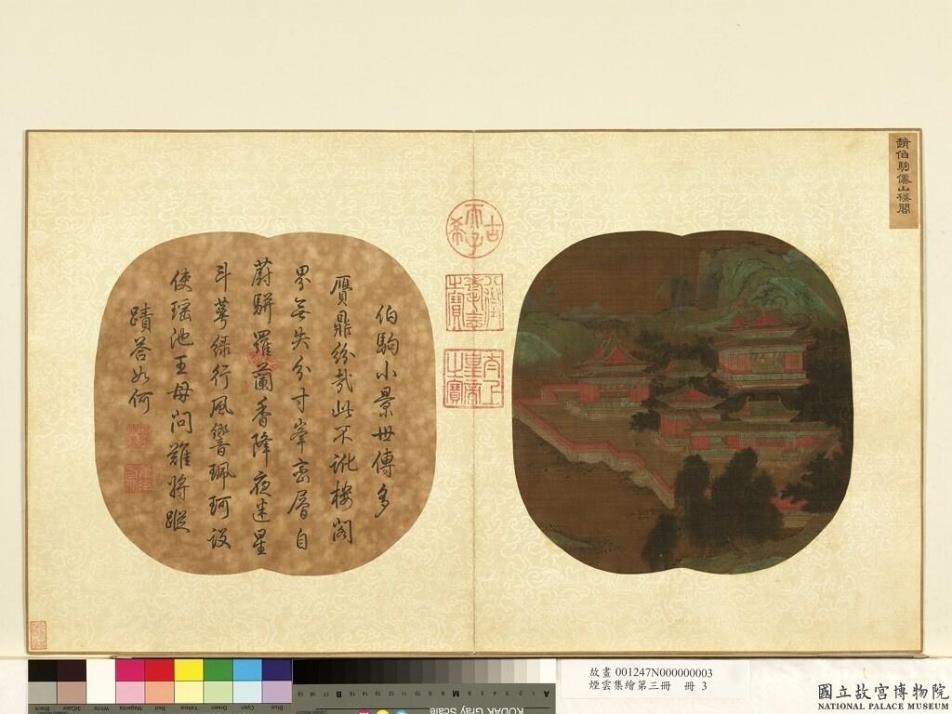 趙伯駒僊山樓閣
伯駒小景世傳多
贋鼎紛哉此不訛樓閣
界無失分寸峯巒層自
蔚駢羅蘭香降夜迷星
斗萼綠行風響珮珂設
使瑤池王母問難將蹤
蹟答如何
古希天子
八徵耄念之寶
太上皇帝之寶
Blue
Cyan
Green
Yellow
Red
Magenta
White
3/Color
Black
KODAK Gray Scale
故畫 001247N000000003
煙雲集繪第三冊 冊 3
國立故宮博物院
NATIONAL PALACE MUSEUM